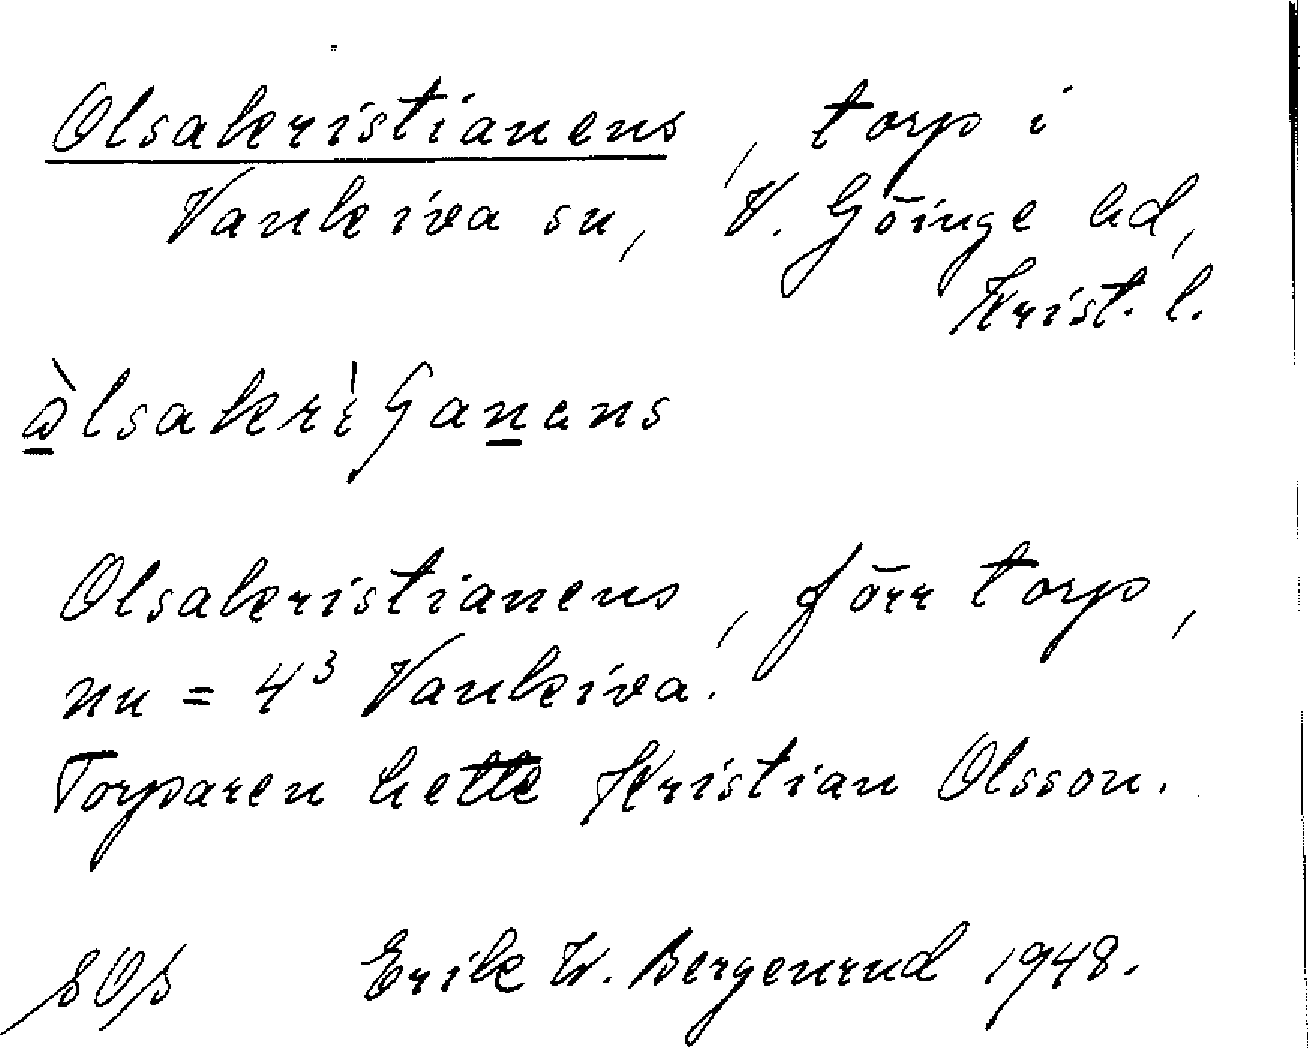 Olsakristianens, torp i
Vankiva sn, V. Göinge hd,
Krist. l.
Olsakristianens, förr torp,
nu = 4³ Vankiva.
Torparen hette Kristian Olsson.
Erik W. Bergenrud 1948.